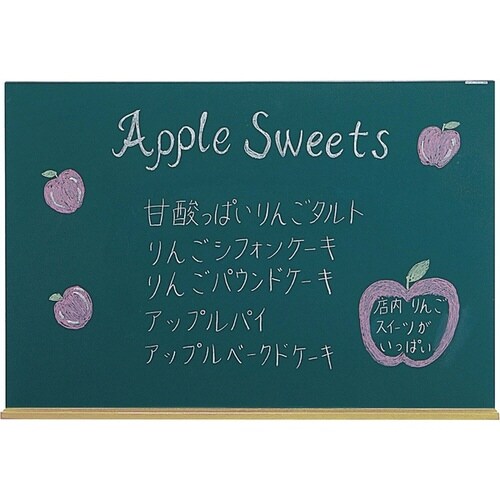 Apple Sweets
甘酸っぱいりんごタルト
りんごシフォンケーキ
りんごパウンドケーキ
アップルパイ
アップルベークドケーキ
店内 りんご
スイーツが
いっぱい